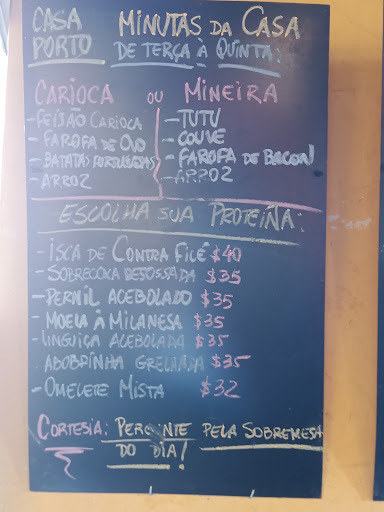 CASA PORTO
MINUTAS DA CASA
DE TERÇA À QUINTA:
CARIOCA OU MINEIRA
- FEIJÃO CARIOCA
- FAROFA DE OVO
- BATATAS PORTUGUESAS
- ARROZ
- TUTU
- COUVE
- FAROFA DE BACON
- ARROZ
ESCOLHA SUA PROTEÍNA:
- ISCA DE CONTRA FILÉ $40
- SOBRECOXA DESOSSADA $35
- PERNIL ACEBOLADO $35
- MOELA À MILANESA $35
- LINGUIÇA ACEBOLADA $35
- ABOBRINHA GRELHADA $35
- OMELETE MISTA $32
CORTESIA: PERGUNTE PELA SOBREMESA
DO DIA!